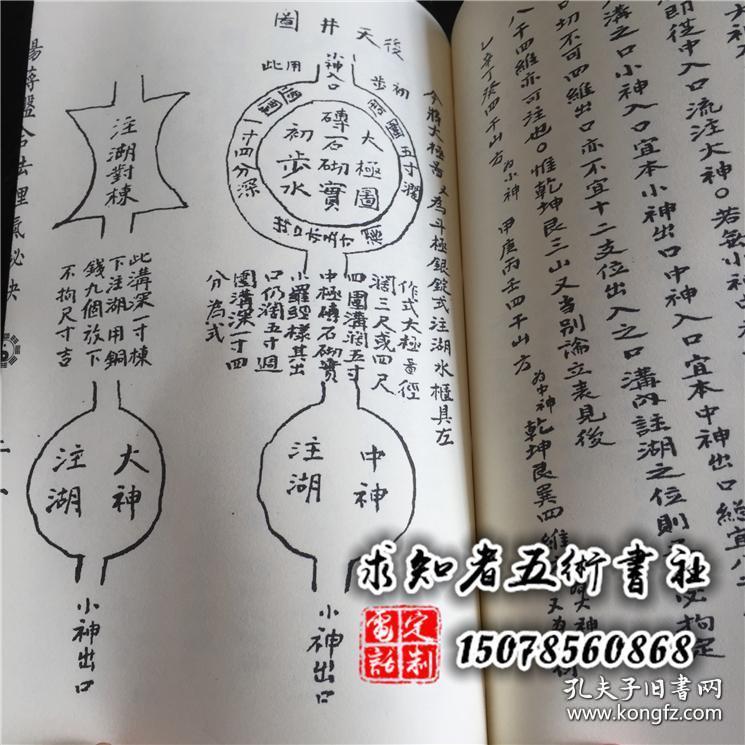 即從中入口流注大神。若無小神
溝之口小神入口宜本小神出口中神入口宜本中神出口總宜八
八干四維亦可注也。惟乾坤艮三山又當別論立表見後
切不可四維出口亦不宜十二支位出入之口溝內註湖之位則
乙辛丁癸四干山方為小神 甲庚丙壬四干山方為中神 乾坤艮巽四維
後天井圖
今將大極圖又為斗極銀錠式注湖水櫃具左
初步
用此
小神入口
四圍五寸濶
一寸四分深
大極圖
磚石砌實
初步水
作式大極圖徑
濶三尺或四尺
四圍溝濶五寸
中極磚石砌實
小羅經樣其出
口仍濶五寸週
圍溝深一寸四
分為式
中神
注湖
小神出口
注湖對棟
此溝深一寸棟
下注湖用銅
錢九個放下
不拘尺寸吉
大神
注湖
小神出口
楊蔣盤合法理氣秘訣
求知者五術書社
定制
電話
15078560868
孔夫子旧書网
www.kongfz.com